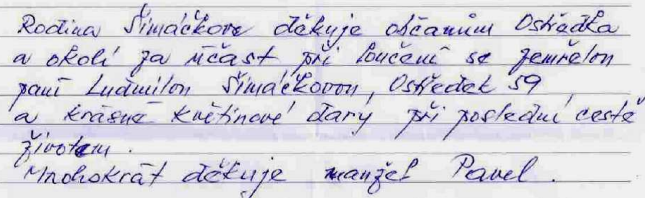 Rodina Šimáčkova děkuje občanům Ostředka
a okolí za účast při loučení se zemřelou
paní Ludmilou Šimáčkovou, Ostředek 59
a krásné květinové dary při poslední cestě
životem.
Mnohokrát děkuje manžel Pavel.